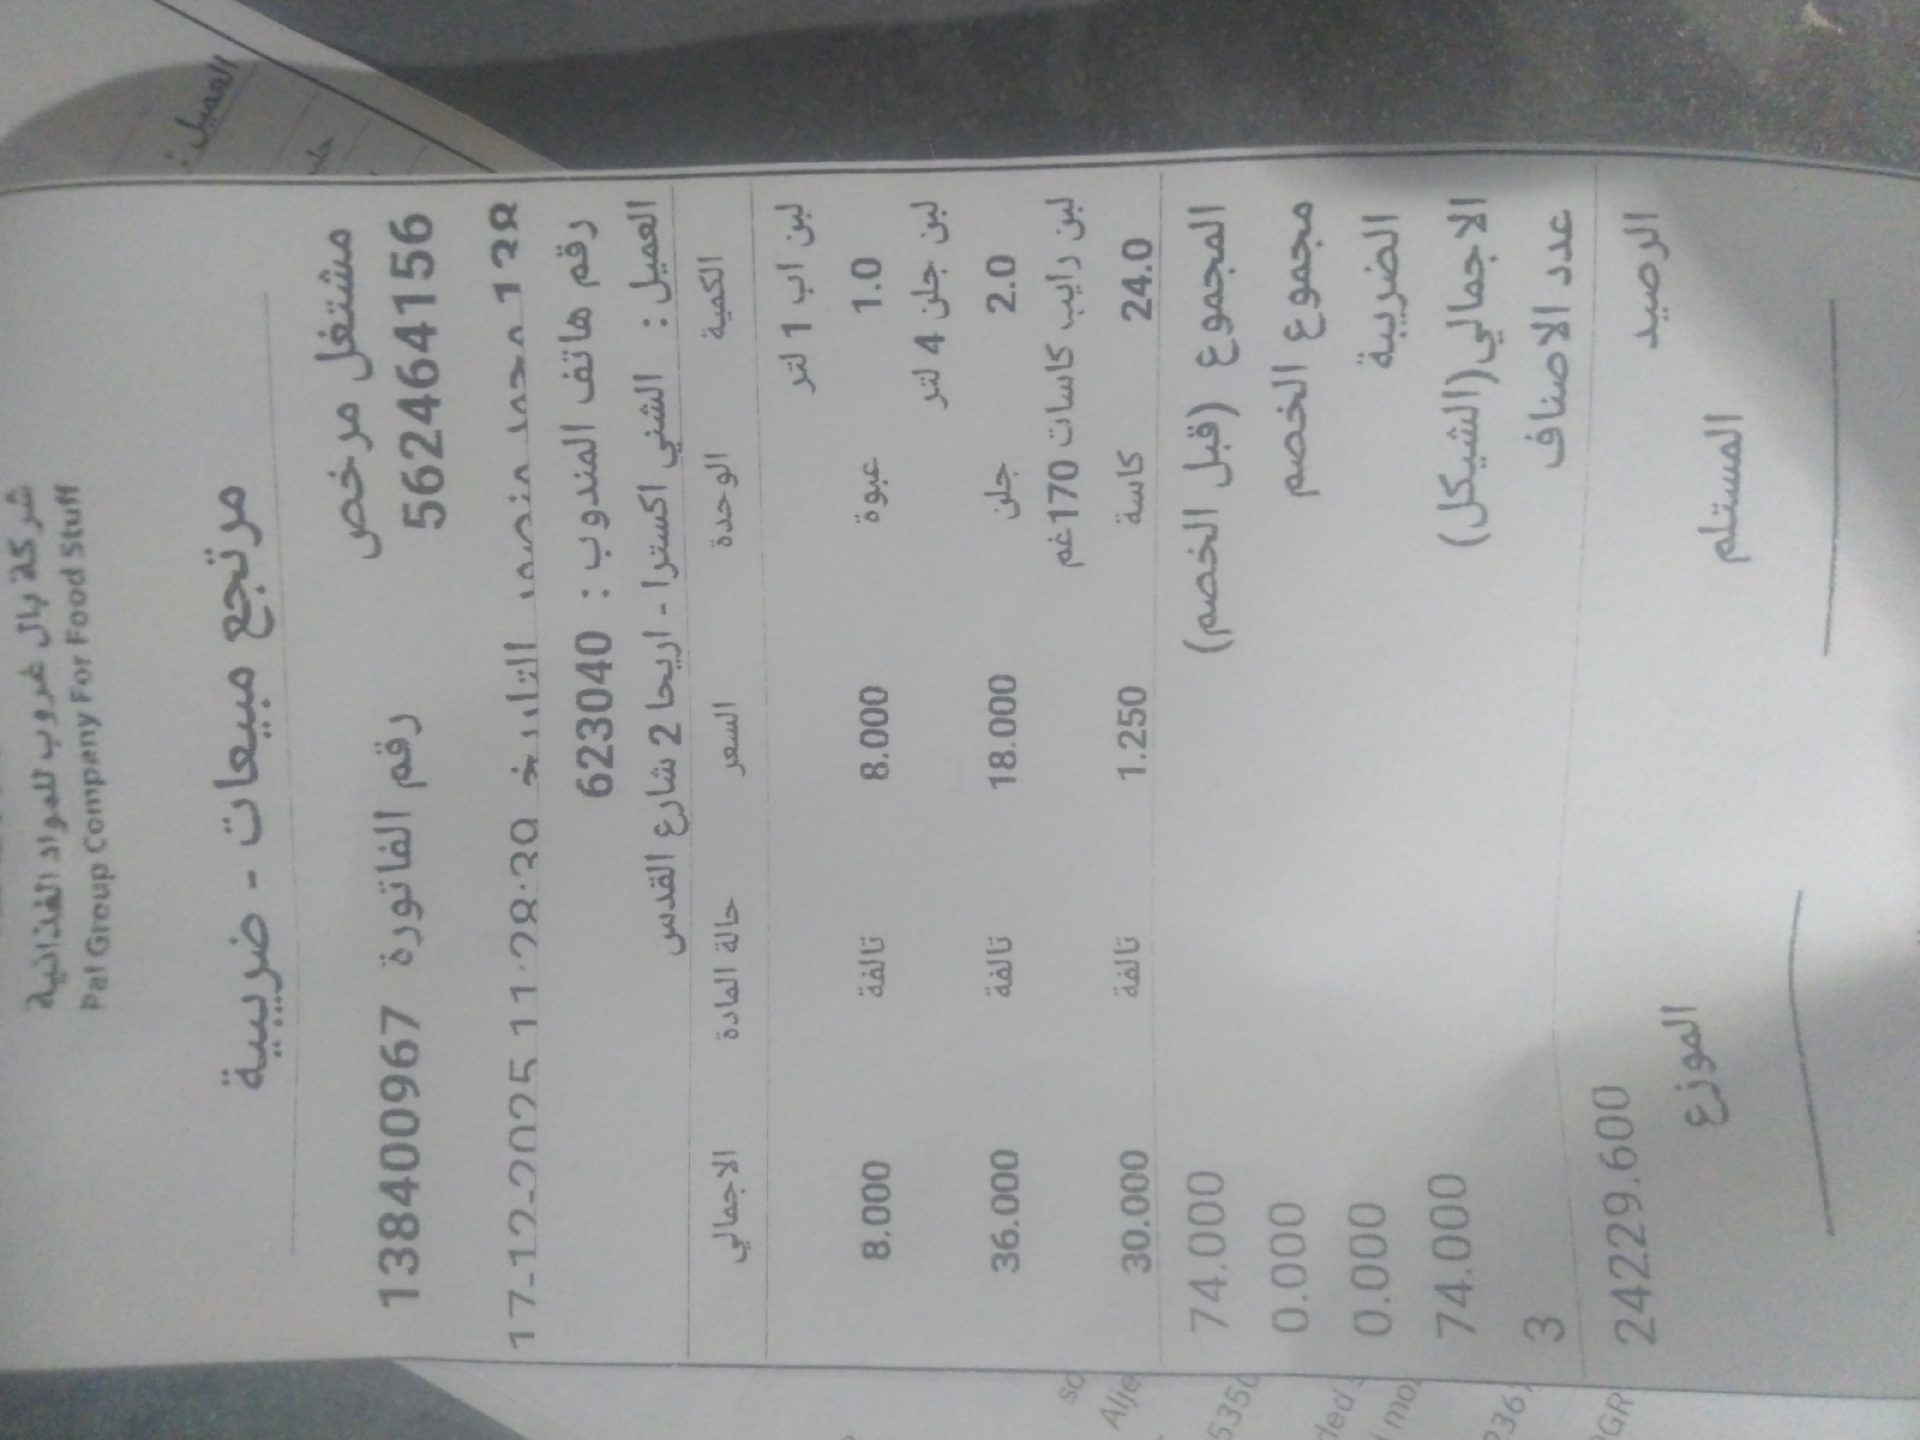 شركة بال غروب للمواد الغذائية
Pal Group Company For Food Stuff
مرتجع مبيعات - ضريبية
مشتغل مرخص
562464156 رقم الفاتورة 138400967
128 محمد منصور التاريخ 17-12-2025 11:28:39
رقم هاتف المندوب : 623040
العميل : الشني اكسترا - اريحا 2 شارع القدس
الكمية الوحدة السعر حالة المادة الاجمالي
لبن اب 1 لتر
1.0 عبوة 8.000 تالفة 8.000
لبن جلن 4 لتر
2.0 جلن 18.000 تالفة 36.000
لبن رايب كاسات 170غم
24.0 كاسة 1.250 تالفة 30.000
المجموع (قبل الخصم) 74.000
مجموع الخصم 0.000
الضريبة 0.000
الاجمالي(الشيكل) 74.000
عدد الاصناف 3
الرصيد 24229.600
المستلم الموزع
العميل :